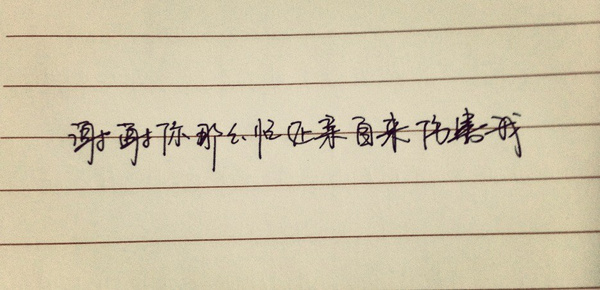 谢谢你那么忙还亲自来伤害我